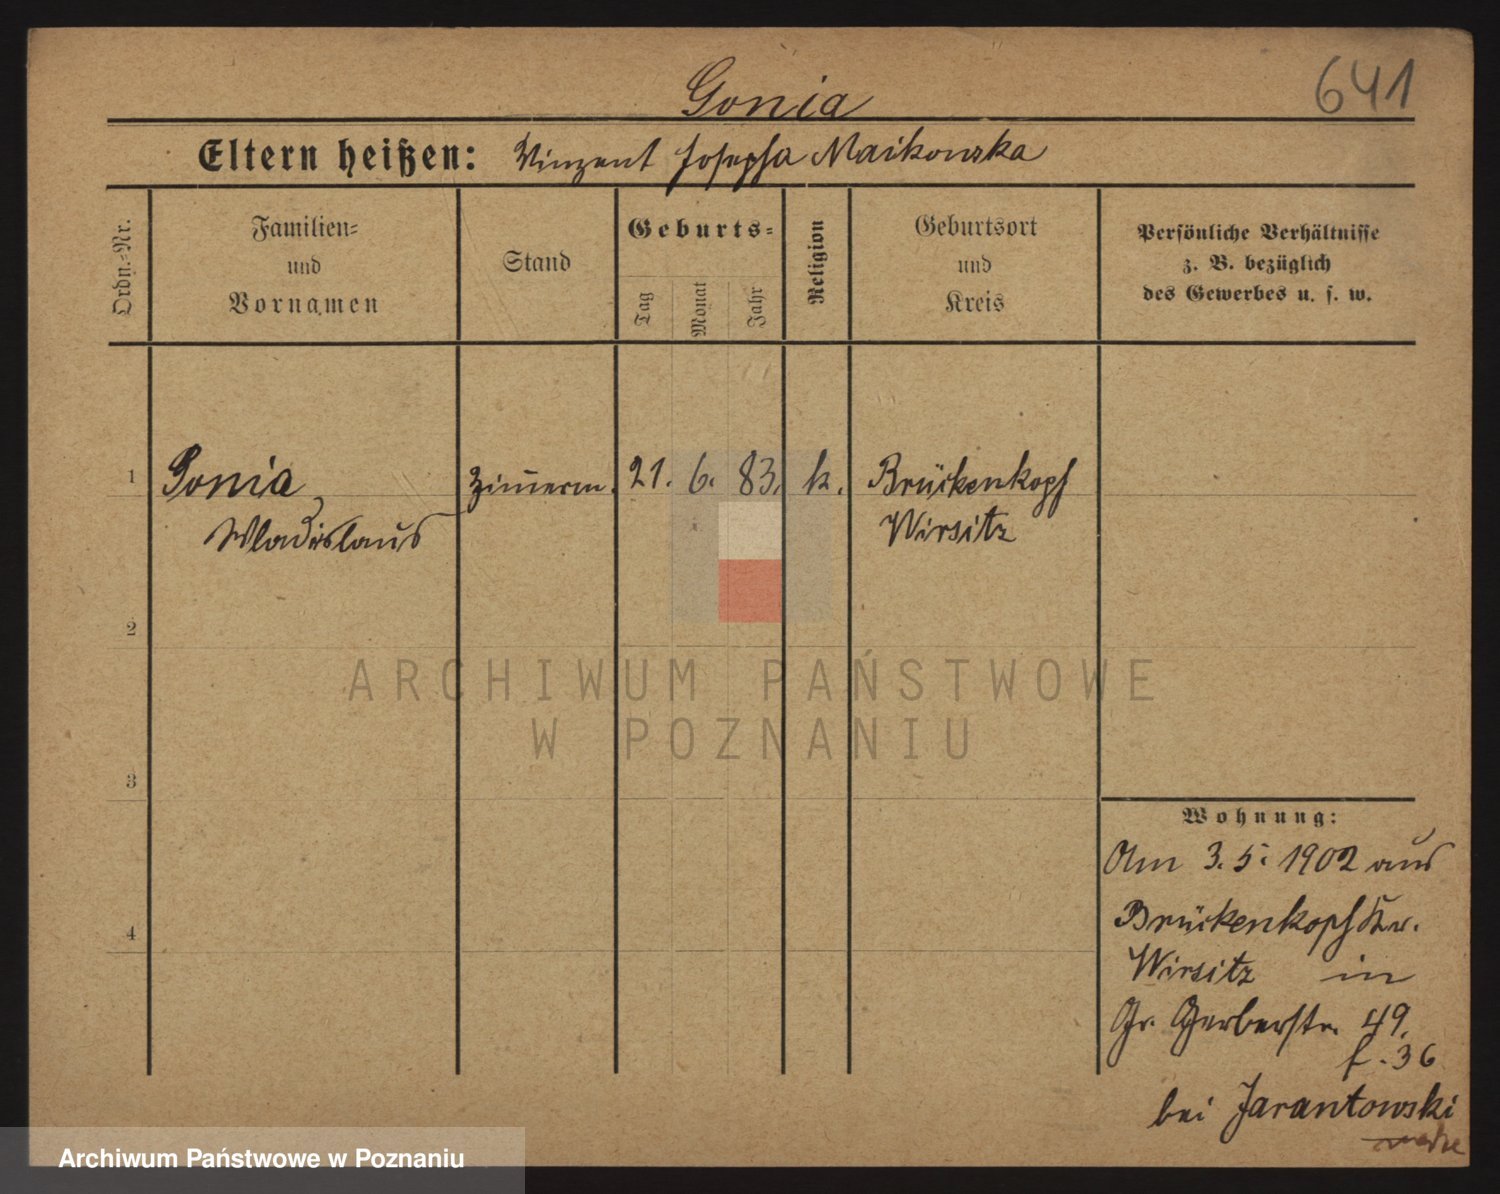 641
Gonia
Eltern heißen: Vinzent Josepha Maikowska
Ordn.-Nr.
Familien-
und
Vornamen
Stand
Geburts-
Tag
Monat
Jahr
Religion
Geburtsort
und
Kreis
Persönliche Verhältnisse
z. B. bezüglich
des Gewerbes u. s. w.
1 Gonia Zimmerm. 21. 6. 83. k. Brückenkopf
Wladislaus Wirsitz
2
3
4
Wohnung:
Am 3. 5. 1902 aus
Brückenkopf Kr.
Wirsitz in
Gr. Gerberstr. 49.
f. 36
bei Jarantowski
ARCHIWUM PAŃSTWOWE
W POZNANIU
Archiwum Państwowe w Poznaniu